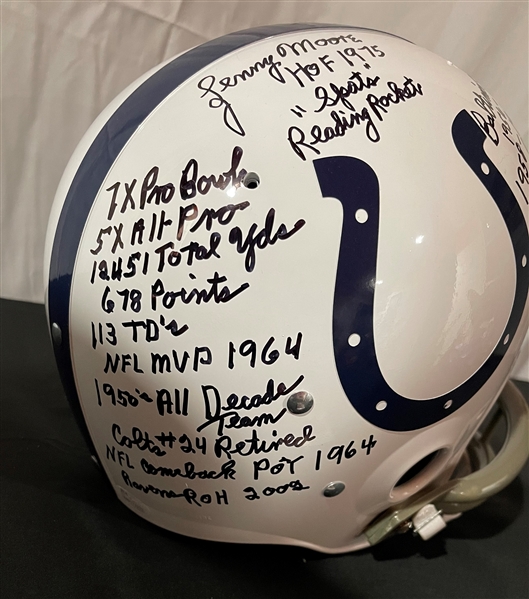 Lenny Moore
HOF 1975
"Spats"
Reading Rocket
7X Pro Bowl
5X All Pro
12,451 Total Yds
678 Points
113 TD's
NFL MVP 1964
1950's All Decade
Team
Colts #24 Retired
NFL Comeback PoY 1964
Ravens RoH 2002